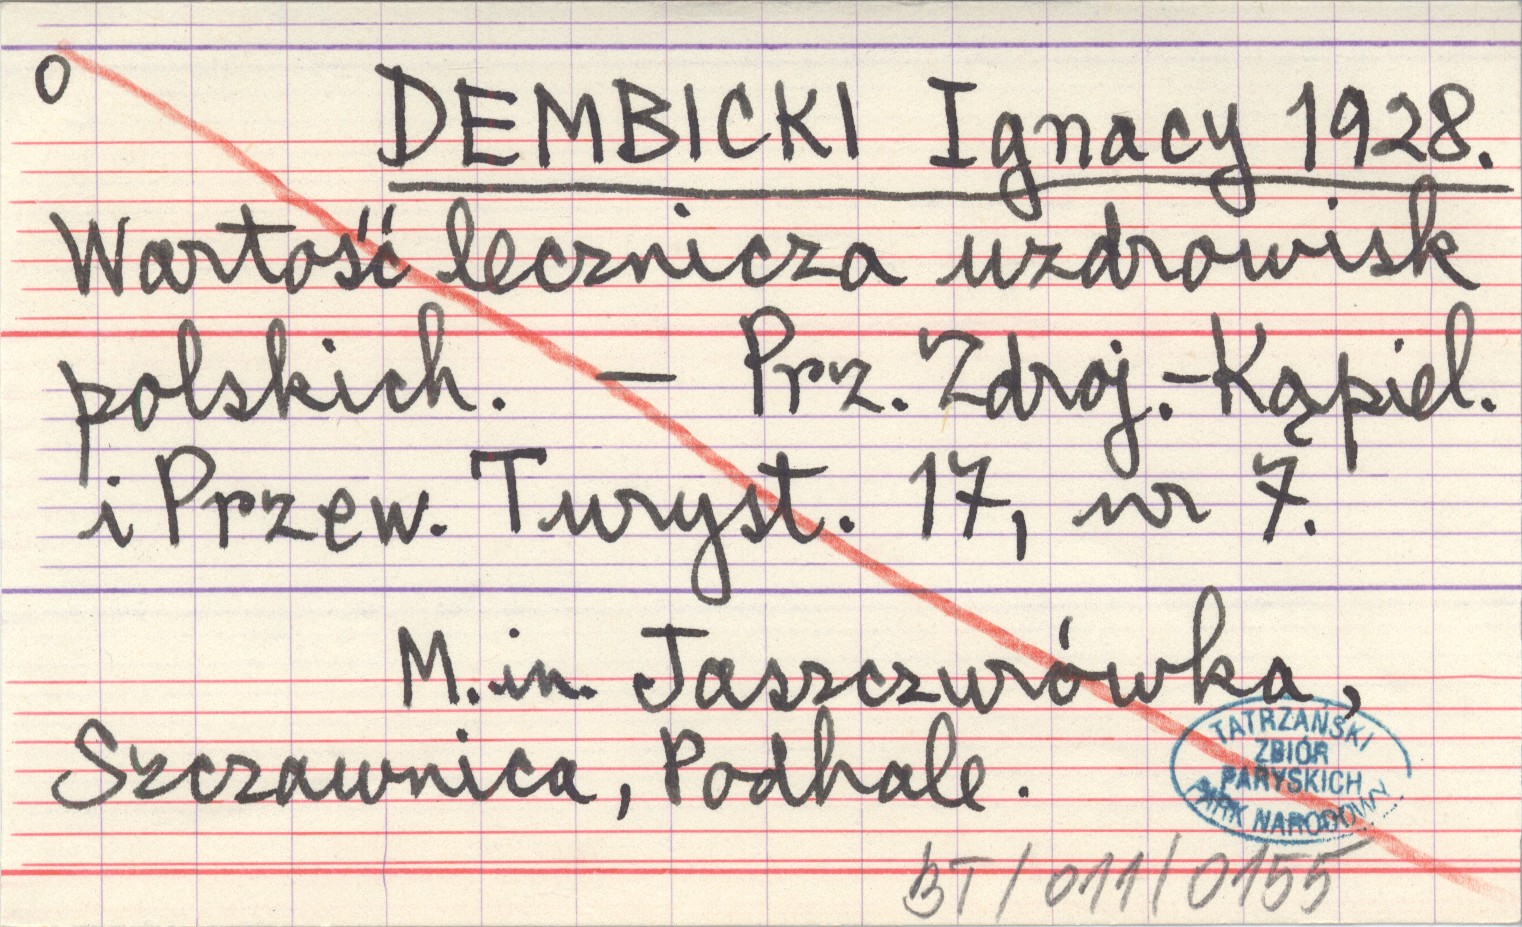 O
DEMBICKI Ignacy 1928.
Wartość lecznicza uzdrowisk
polskich. — Prz. Zdroj.-Kąpiel.
i Przew. Turyst. 17, nr 7.
M.in. Jaszczurówka,
Szczawnica, Podhale.
TATRZAŃSKI
ZBIÓR
PARYSKICH
PARK NARODOWY
BT/011/0155